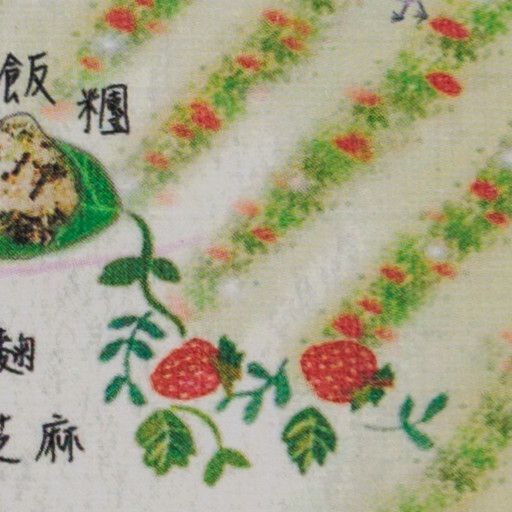 飯糰
麴
芝麻